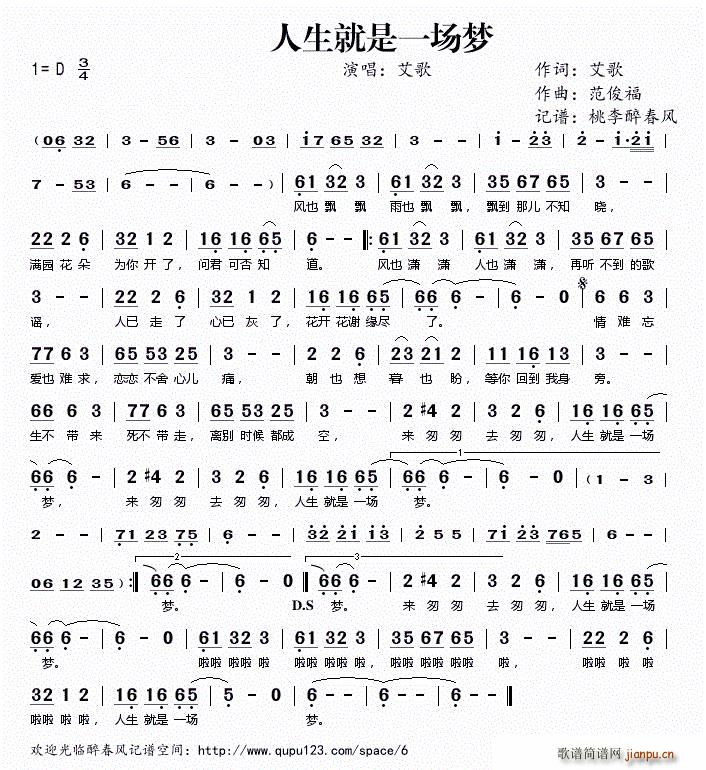 人生就是一场梦
1=D 3/4 演唱：艾歌 作词：艾歌
作曲：范俊福
记谱：桃李醉春风
(06 32 | 3 - 56 | 3 - 03 | i765 32 | 3 - - | i - 23 | 2 - i·21 |
7 - 53 | 6 - - | 6 - - ) | 61 32 3 | 61 32 3 | 35 67 65 | 3 - - |
风也 飘 飘 雨也 飘 飘，飘到 那儿 不知 晓，
22 2 6 | 32 1 2 | 16 16 65 | 5 - - |: 61 32 3 | 61 32 3 | 35 67 65 |
满园 花 朵 为你 开 了，问君 可否 知 道。 风也 潇 潇 人也 潇 潇，再听 不到 的歌
3 - - | 22 2 6 | 32 1 2 | 16 16 65 | 66 6 - | 6 - 0 | 6 6 3 |
谣， 人已 走 了 心已 灰 了，花开 花谢 缘尽 了。 情 难 忘
77 6 3 | 65 53 25 | 3 - - | 2 2 6 | 23 21 2 | 11 16 13 | 3 - - |
爱也 难 求，恋恋 不舍 心儿 痛， 朝 也 想 暮 也 盼，等你 回到 我身 旁。
66 6 3 | 77 63 | 65 53 25 | 3 - - | 2 #4 2 | 3 2 6 | 16 16 65 |
生不 带 来 死不 带走，离别 时候 都成 空， 来 匆 匆 去 匆 匆，人生 就是 一场
66 6 - | 2 #4 2 | 3 2 6 | 16 16 65 | 66 6 - | 6 - 0 | (1 - 3 |
梦， 来 匆 匆 去 匆 匆，人生 就是 一场 梦。
2 - - | 71 23 75 | 6 - - | 32 21 13 | 2 5 5 | 71 23 765 | 6 - - |
06 12 35) :| 66 6 - | 6 - 0 | 66 6 - | 2 #4 2 | 3 2 6 | 16 16 65 |
梦。 D.S 梦。 来 匆 匆 去 匆 匆，人生 就是 一场
66 6 - | 6 - 0 | 61 32 3 | 61 32 3 | 35 67 65 | 3 - - | 22 2 6 |
梦。 啦啦 啦啦 啦 啦啦 啦啦 啦 啦啦 啦啦 啦啦 啦， 啦啦 啦 啦
32 1 2 | 16 16 65 | 5 - 0 | 6 - - | 6 - - ‖
啦啦 啦 啦，人生 就是 一场 梦。
欢迎光临醉春风记谱空间：http://www.qupu123.com/space/6
歌谱简谱网 jianpu.cn